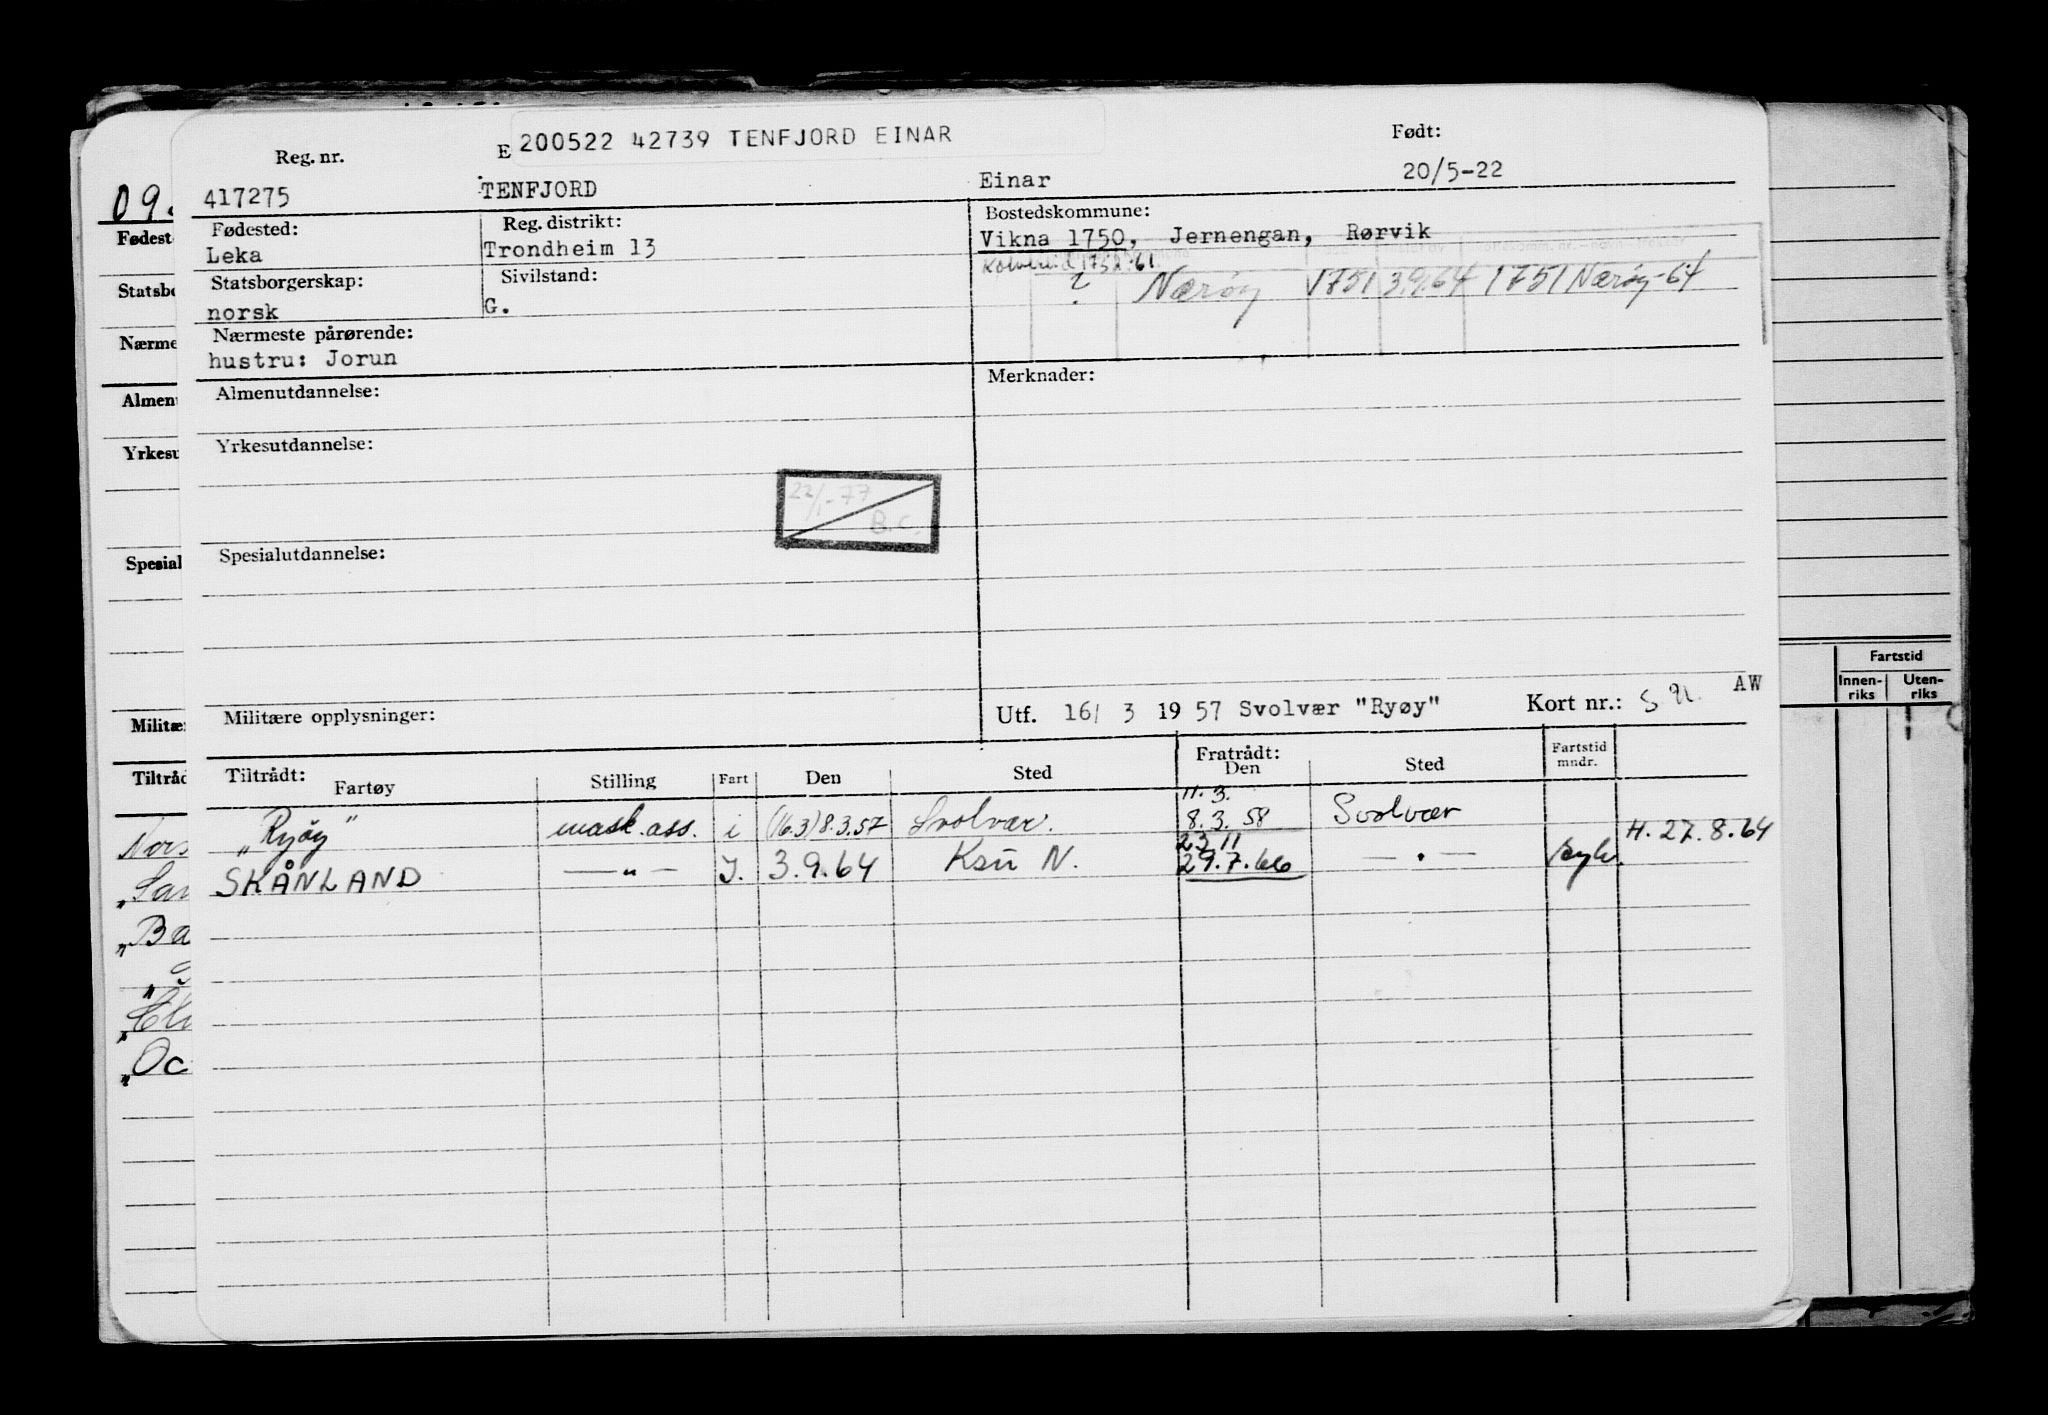 200522 42739 TENFJORD EINAR
Reg. nr.
E
Født:
417275
TENFJORD
Einar
20/5-22
09.
Fødested:
Reg. distrikt:
Bostedskommune:
Leka
Trondheim 13
Vikna 1750, Jernengan, Rørvik
Statsborgerskap:
Sivilstand:
norsk
G.
? Nærøy 1751 3.9.64 1751 Nærøy-64
Nærmeste pårørende:
hustru: Jorun
Almenutdannelse:
Merknader:
Yrkesutdannelse:
22/1-77
B.C.
Spesialutdannelse:
Militære opplysninger:
Utf. 16/ 3 19 57 Svolvær "Ryøy"
Kort nr.:
AW
Tiltrådt:
Fartøy
Stilling
Fart
Den
Sted
Fratrådt:
Den
Sted
Fartstid
mndr.
11.3.
"Ryøy" mask.ass. i (16.3) 8.3.57 Svolvær. 8.3.58 Svolvær
H. 27.8.64
23 11
SKÅNLAND —"— I. 3.9.64 Ksu N. 29.7.66 — . —
Fartstid
Innen-
riks
Uten-
riks